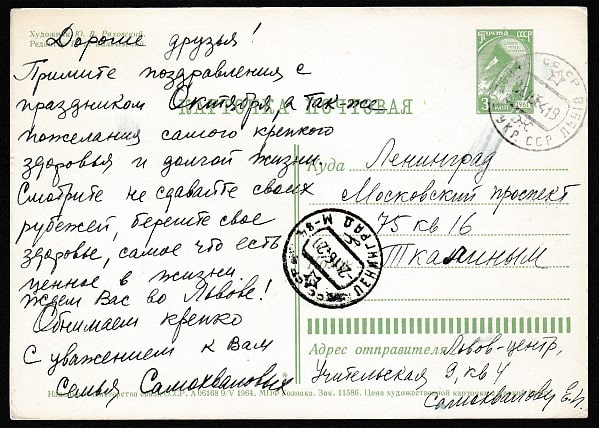 Художник Ю. В. Ряховский.
Дорогие друзья!
Примите поздравления с
праздником Октября, а так-же
пожелания самого крепкого
здоровья и долгой жизни.
Смотрите не сдавайте своих
рубежей, берегите свое
здоровье, самое что есть
ценное в жизни
Ждем Вас во Львове!
Обнимаем крепко
С уважением к Вам
Семья Самохваловых
КАРТОЧКА ПОЧТОВАЯ
Почта СССР
3 коп
СССР
УКР. ССР ЛЬВІВ
Куда Ленинград
Московский проспект
75 кв 16
Ткалиным
ЛЕНИНГРАД М-84
СССР
Адрес отправителя Львов-центр,
Учительская 9, кв 4
Самохвалову Е.И.
СССР. А 06168 9/V 1964. МПФ Гознака. Зак. 11586. Цена с маркой 4 коп.